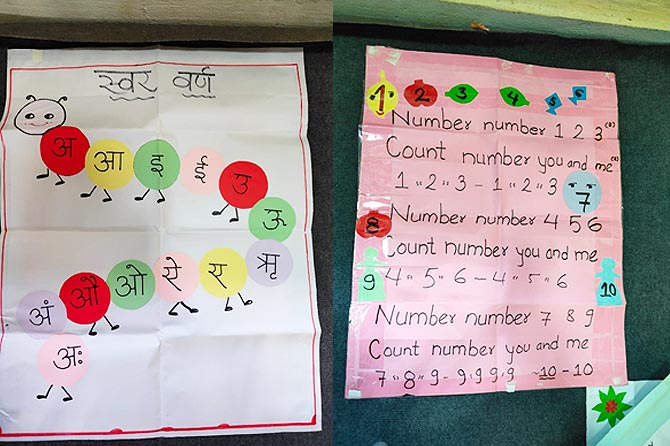 स्वर वर्ण
अ आ इ ई उ
ऊ
ऋ ए ऐ ओ औ अं
अः
1 2 3 4 5 6
Number number 1 2 3⁽²⁾
Count number you and me⁽²⁾
1 " 2 " 3 - 1 " 2 " 3
7
8
Number number 4 5 6
Count number you and me
9
4 " 5 " 6 - 4 " 5 " 6
10
Number number 7 8 9
Count number you and me
7 " 8 " 9 - 9 9 9 9 - 10 - 10